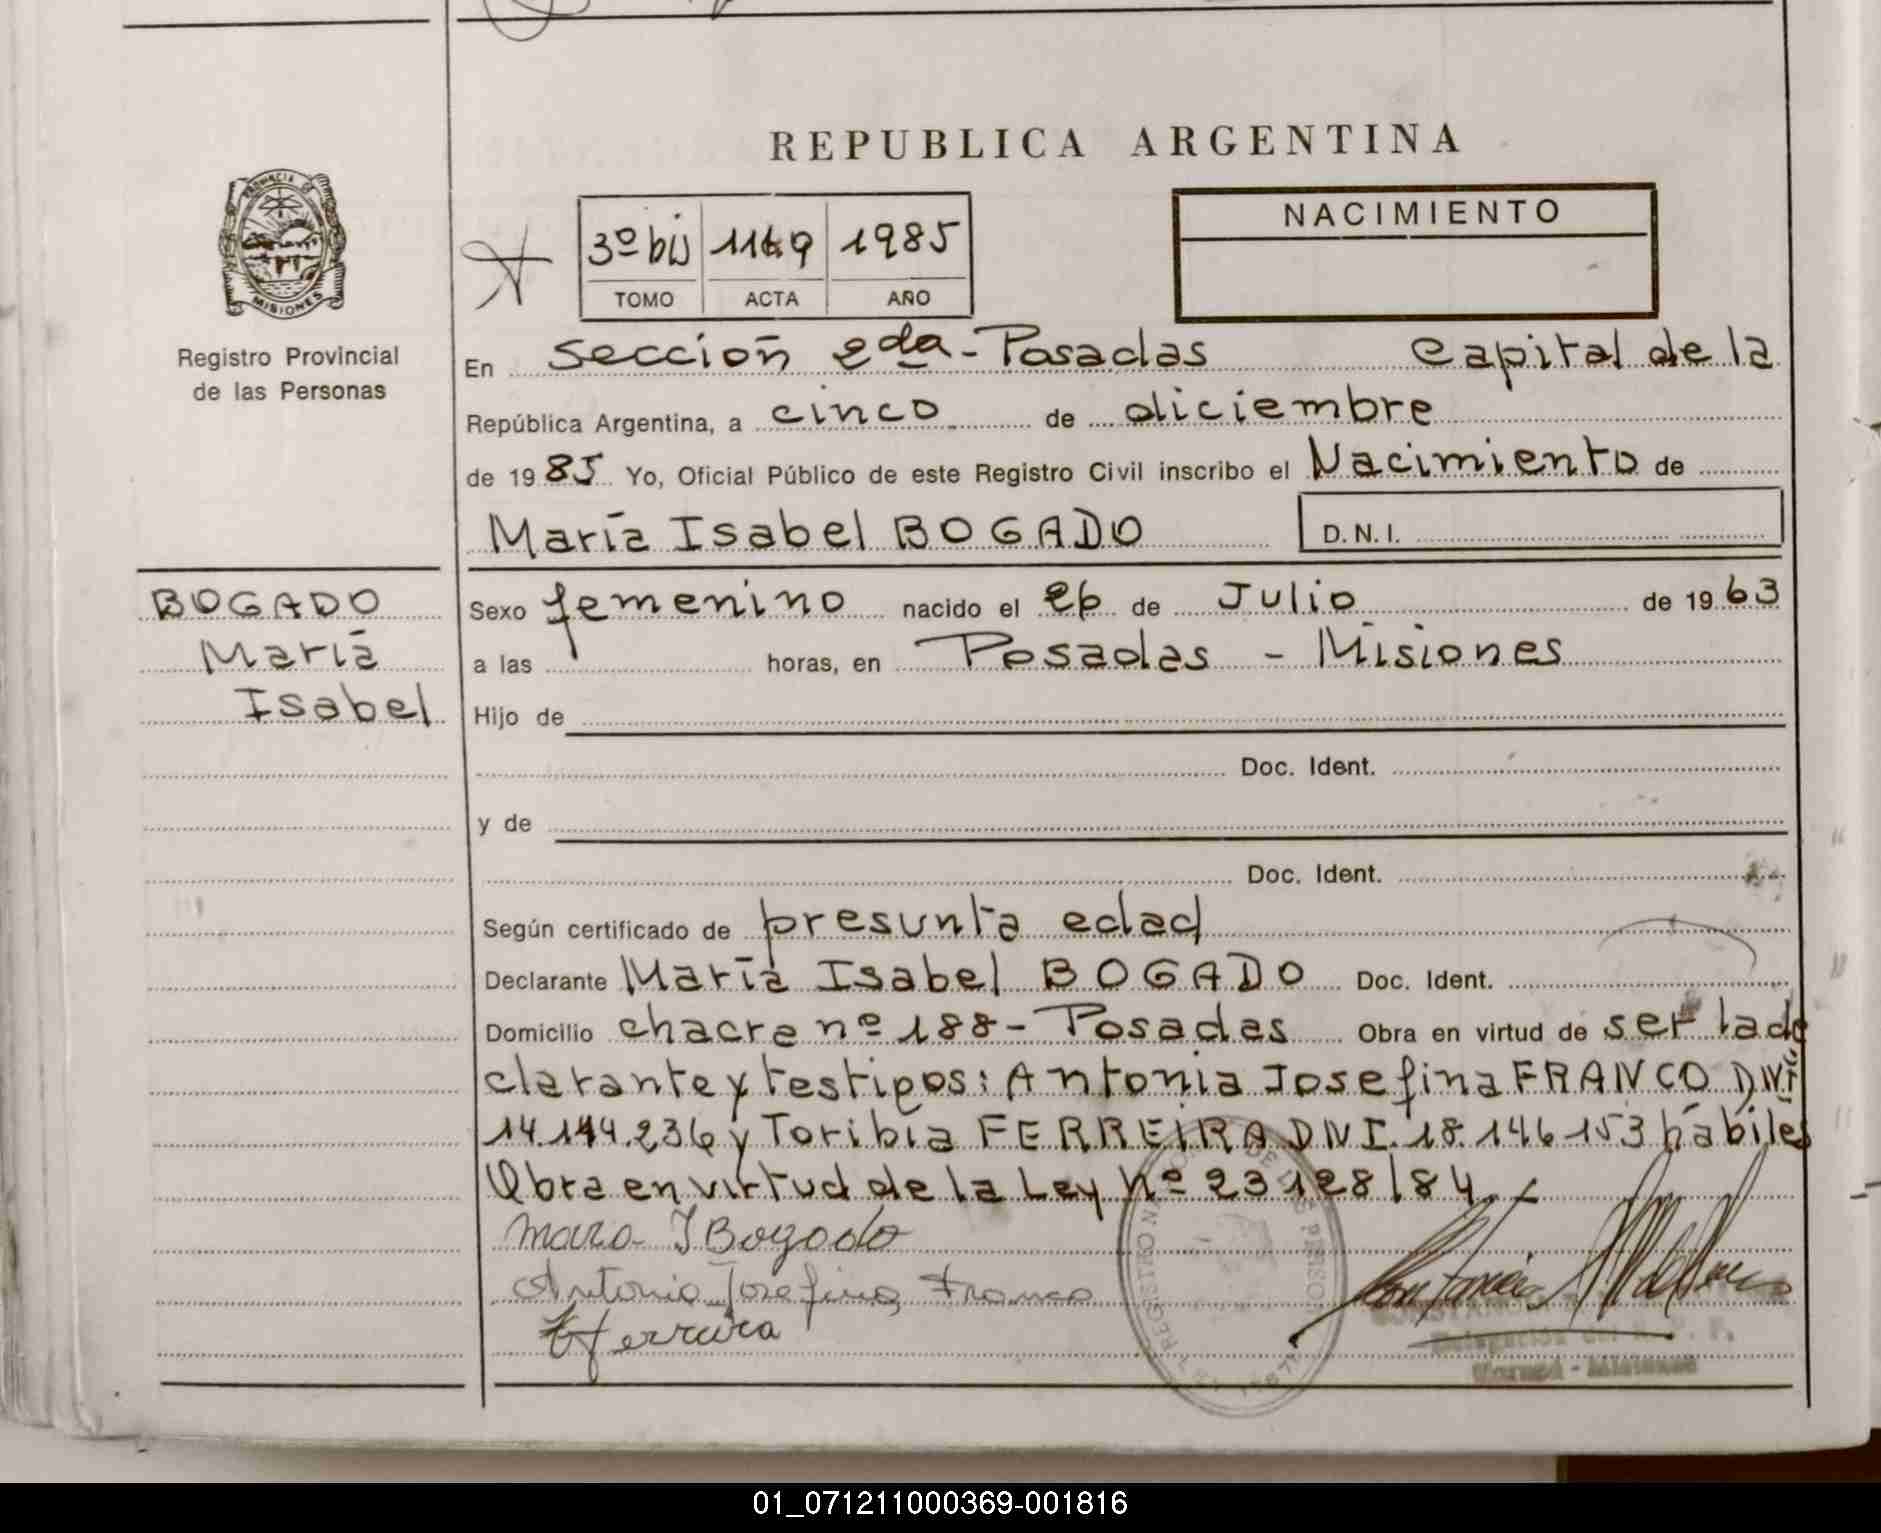 REPUBLICA ARGENTINA
PROVINCIA DE
MISIONES
Registro Provincial
de las Personas
3º bis 1149 1985
TOMO ACTA AÑO
NACIMIENTO
En Sección 2da - Posadas Capital de la
República Argentina, a cinco de diciembre
de 1985 Yo, Oficial Público de este Registro Civil inscribo el Nacimiento de
María Isabel BOGADO D.N.I.
BOGADO
María
Isabel
Sexo femenino nacido el 26 de Julio de 1963
a las horas, en Posadas - Misiones
Hijo de
Doc. Ident.
y de
Doc. Ident.
Según certificado de presunta edad
Declarante María Isabel BOGADO Doc. Ident.
Domicilio chacra nº 188 - Posadas Obra en virtud de ser la de
clarante y testigos: Antonia Josefina FRANCO DNI
14.144.236 y Toribia FERREIRA DNI. 18.146153 hábiles
Obra en virtud de la Ley Nº 23128/84
Maria I Bogado
Antonia Josefina Franco
T Ferreira
REGISTRO DE LAS PERSONAS
01_071211000369-001816